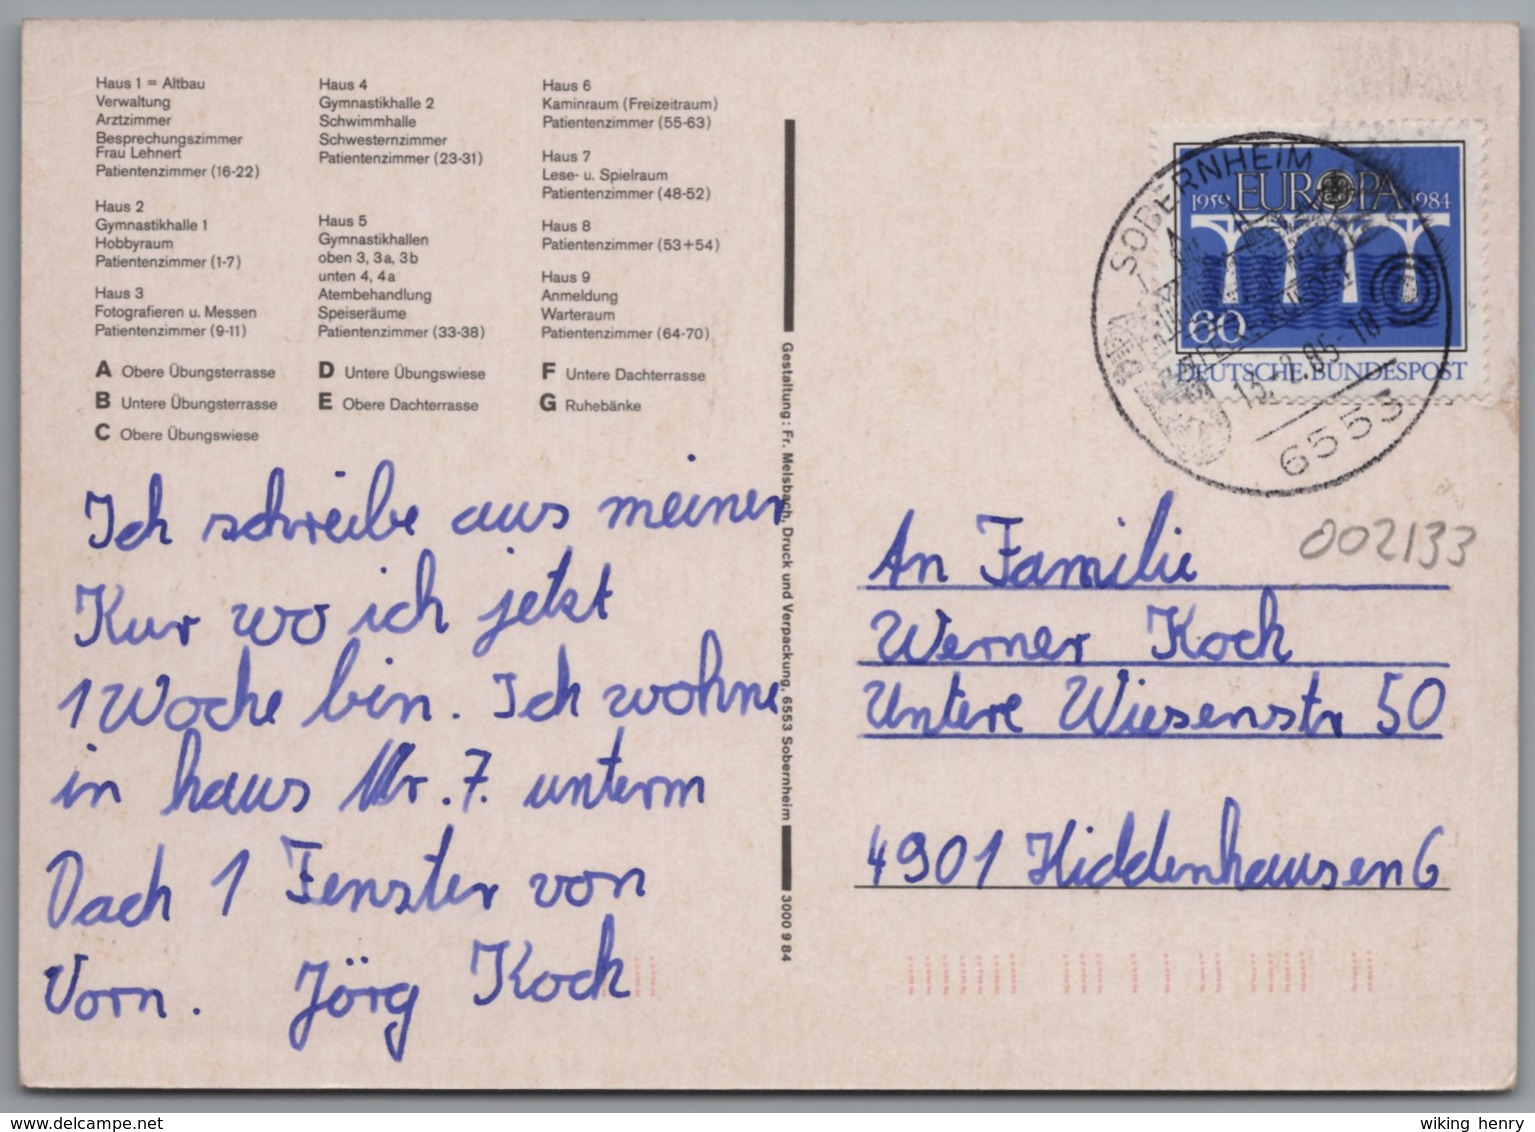 Haus 1 = Altbau
Verwaltung
Arztzimmer
Besprechungszimmer
Frau Lehnert
Patientenzimmer (16-22)
Haus 2
Gymnastikhalle 1
Hobbyraum
Patientenzimmer (1-7)
Haus 3
Fotografieren u. Messen
Patientenzimmer (9-11)
Haus 4
Gymnastikhalle 2
Schwimmhalle
Schwesternzimmer
Patientenzimmer (23-31)
Haus 5
Gymnastikhallen
oben 3, 3a, 3b
unten 4, 4a
Atembehandlung
Speiseräume
Patientenzimmer (33-38)
Haus 6
Kaminraum (Freizeitraum)
Patientenzimmer (55-63)
Haus 7
Lese- u. Spielraum
Patientenzimmer (48-52)
Haus 8
Patientenzimmer (53+54)
Haus 9
Anmeldung
Warteraum
Patientenzimmer (64-70)
A Obere Übungsterrasse
B Untere Übungsterrasse
C Obere Übungswiese
D Untere Übungswiese
E Obere Dachterrasse
F Untere Dachterrasse
G Ruhebänke
Ich schreibe aus meiner
Kur wo ich jetzt
1 Woche bin. Ich wohne
in haus Nr. 7. unterm
Dach 1 Fenster von
Vorn. Jörg Koch
Gestaltung: Fr. Melsbach, Druck und Verpackung, 6553 Sobernheim
3000 9 84
1959 EUROPA 1984
60
DEUTSCHE BUNDESPOST
SOBERNHEIM
13.-2.85-18
6553
002133
An Familie
Werner Koch
Untere Wiesenstr 50
4901 Hiddenhausen 6
www.delcampe.net
wiking henry